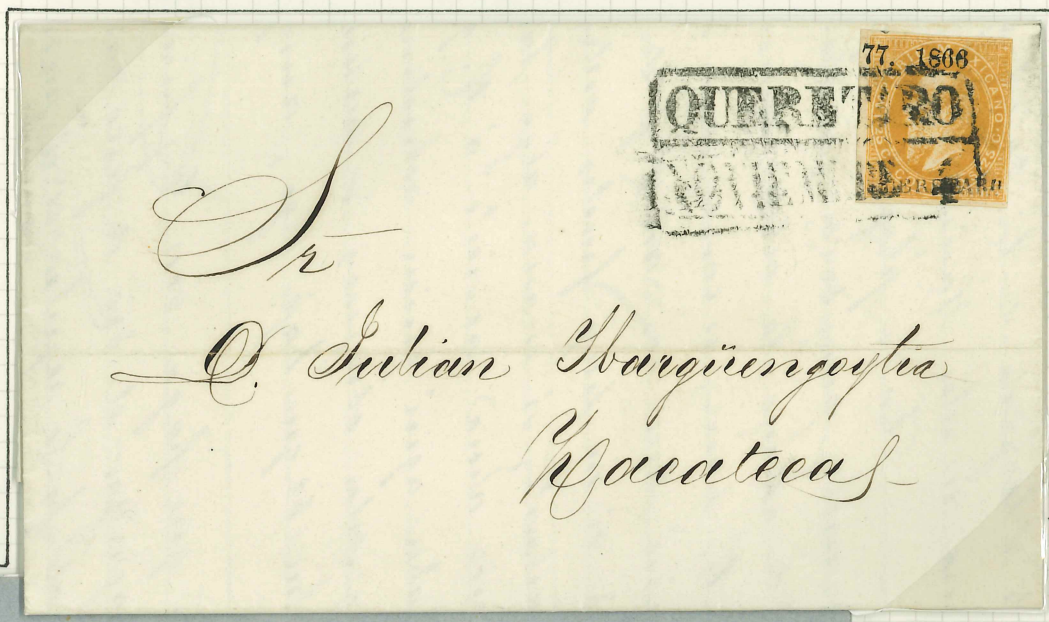 77. 1866
QUERETARO
NOVIEMBRE 4
Sr
D. Julian Ybargüengoytia
Zacatecas